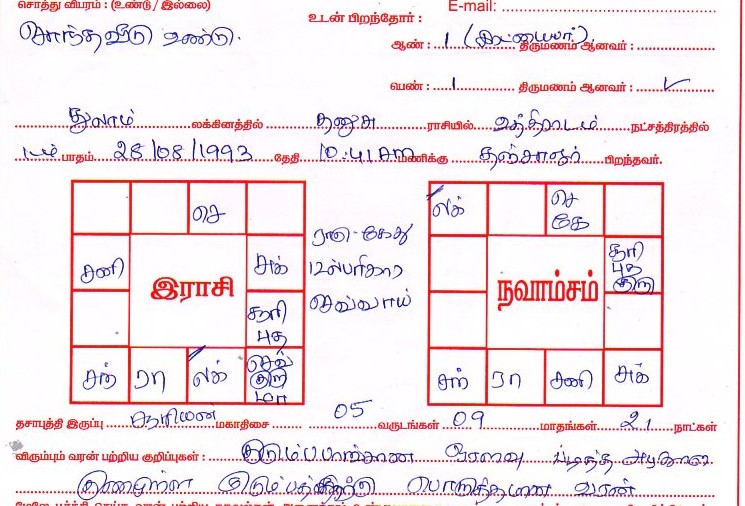 சொத்து விபரம் : (உண்டு / இல்லை)
E-mail:
சொந்தவீடு உண்டு.
உடன் பிறந்தோர் :
ஆண் : 1 திருமணம் ஆனவர் :
பெண் : 1 திருமணம் ஆனவர் : ✓
துலாம் லக்கினத்தில் தனுசு ராசியில் உத்திராடம் நட்சத்திரத்தில்
1ம் பாதம் 28/08/1993 தேதி 10:41 AM மணிக்கு தஞ்சாவூர் பிறந்தவர்.
செ
சனி
சுக்
சூரி
புத
சந்
ரா
லக்
செவ்
குரு
மா
இராசி
ராகு-கேது
பரிகார
செவ்வாய்
லக்
செ
கே
சூரி
புத
குரு
நவாம்சம்
சந்
ரா
சனி
சுக்
தசாபுத்தி இருப்பு சூரியன் மகாதிசை 05 வருடங்கள் 09 மாதங்கள் 21 நாட்கள்
விரும்பும் வரன் பற்றிய குறிப்புகள் : குடும்பபாங்கான ஓரளவு படித்த அழகான
குணமுள்ள பொருத்தமான வரன்